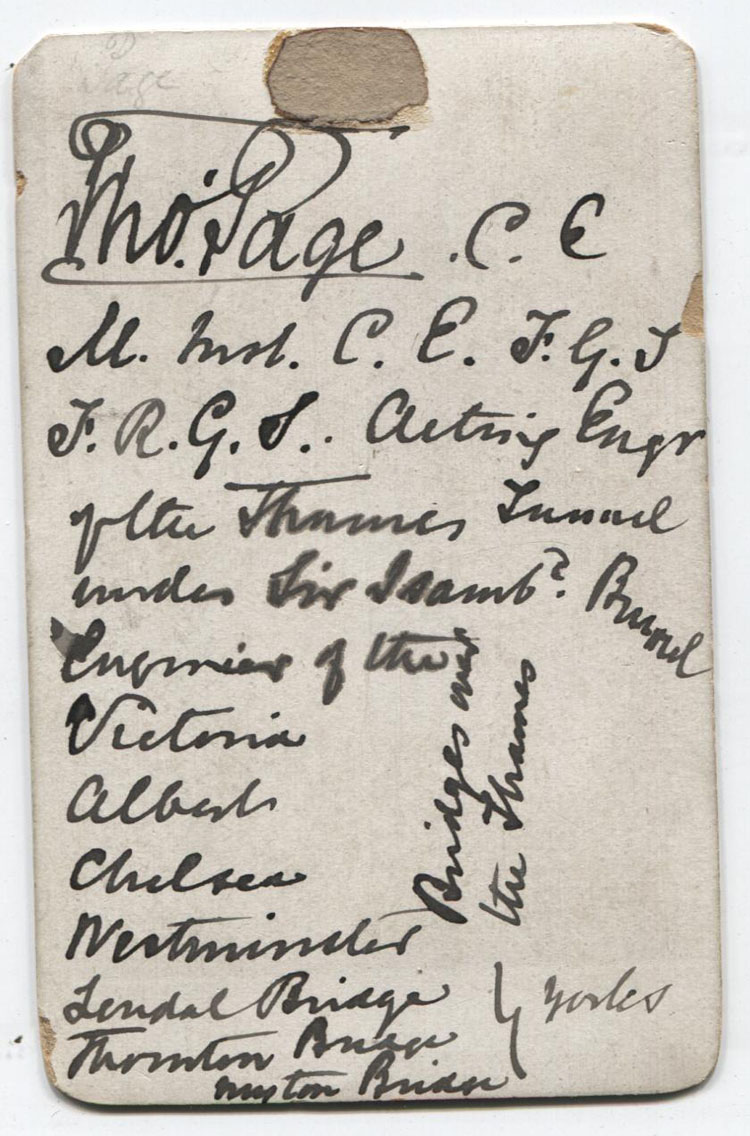 Page
Tho.s Page . C. E
M. Inst. C. E. F. G. S
F. R. G. S.. Acting Engr
of the Thames Tunnel
under Sir Isamb.d Brunel
Engineer of the
Victoria
Albert
Chelsea
Westminster
Bridges over
the Thames
Lendal Bridge
Thornton Bridge
Myton Bridge
Yorks